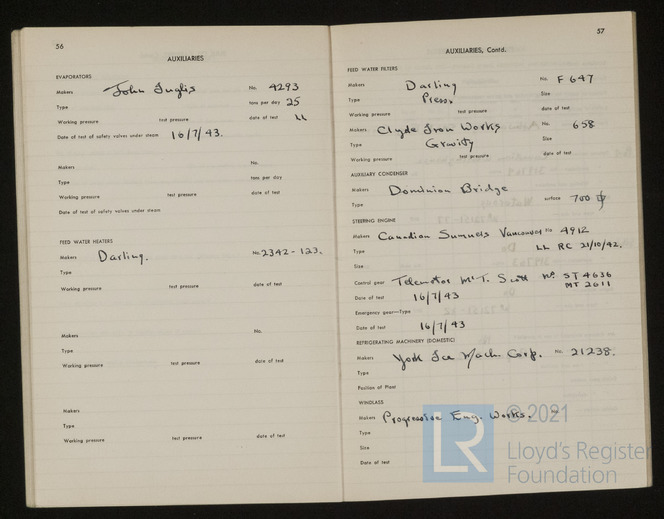 56
AUXILIARIES
EVAPORATORS
Makers John Inglis No. 4293
Type tons per day 25
Working pressure test pressure date of test
Date of test of safety valves under steam 16/7/43.
Makers No.
Type tons per day
Working pressure test pressure date of test
Date of test of safety valves under steam
FEED WATER HEATERS
Makers Darling. No. 2342-123.
Type
Working pressure test pressure date of test
Makers No.
Type
Working pressure test pressure date of test
Makers
Type
Working pressure test pressure date of test
57
AUXILIARIES, Contd.
FEED WATER FILTERS
Makers Darling No. F 647
Type Press Size
Working pressure test pressure date of test
Makers Clyde Iron Works No. 658
Type Gravity Size
Working pressure test pressure date of test
AUXILIARY CONDENSER
Makers Dominion Bridge
Type surface 700
STEERING ENGINE
Makers Canadian Sumners Vancouver No 4912
Type LL RC 31/10/42.
Size
Control gear Telemotor McT. Scott No. ST 4636
MT 2011
Date of test 16/7/43
Emergency gear—Type
Date of test 16/7/43
REFRIGERATING MACHINERY (DOMESTIC)
Makers York Ice Mach. Corp. No. 21238.
Type
Position of Plant
WINDLASS
Makers Progressive Eng. Works. No.
Type
Size
Date of test
LR
© 2021
Lloyd's Register
Foundation